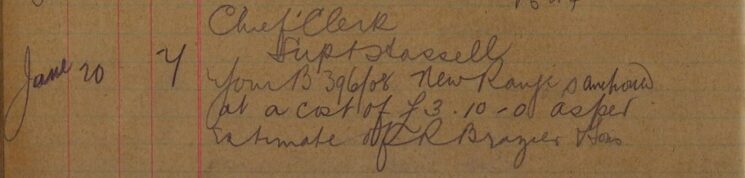 Chief Clerk
Supt Hassell
June 20 Y Your B 396/08 New Range sanctioned
at a cost of £3.10-0 as per
Estimate of R Brazier & Sons